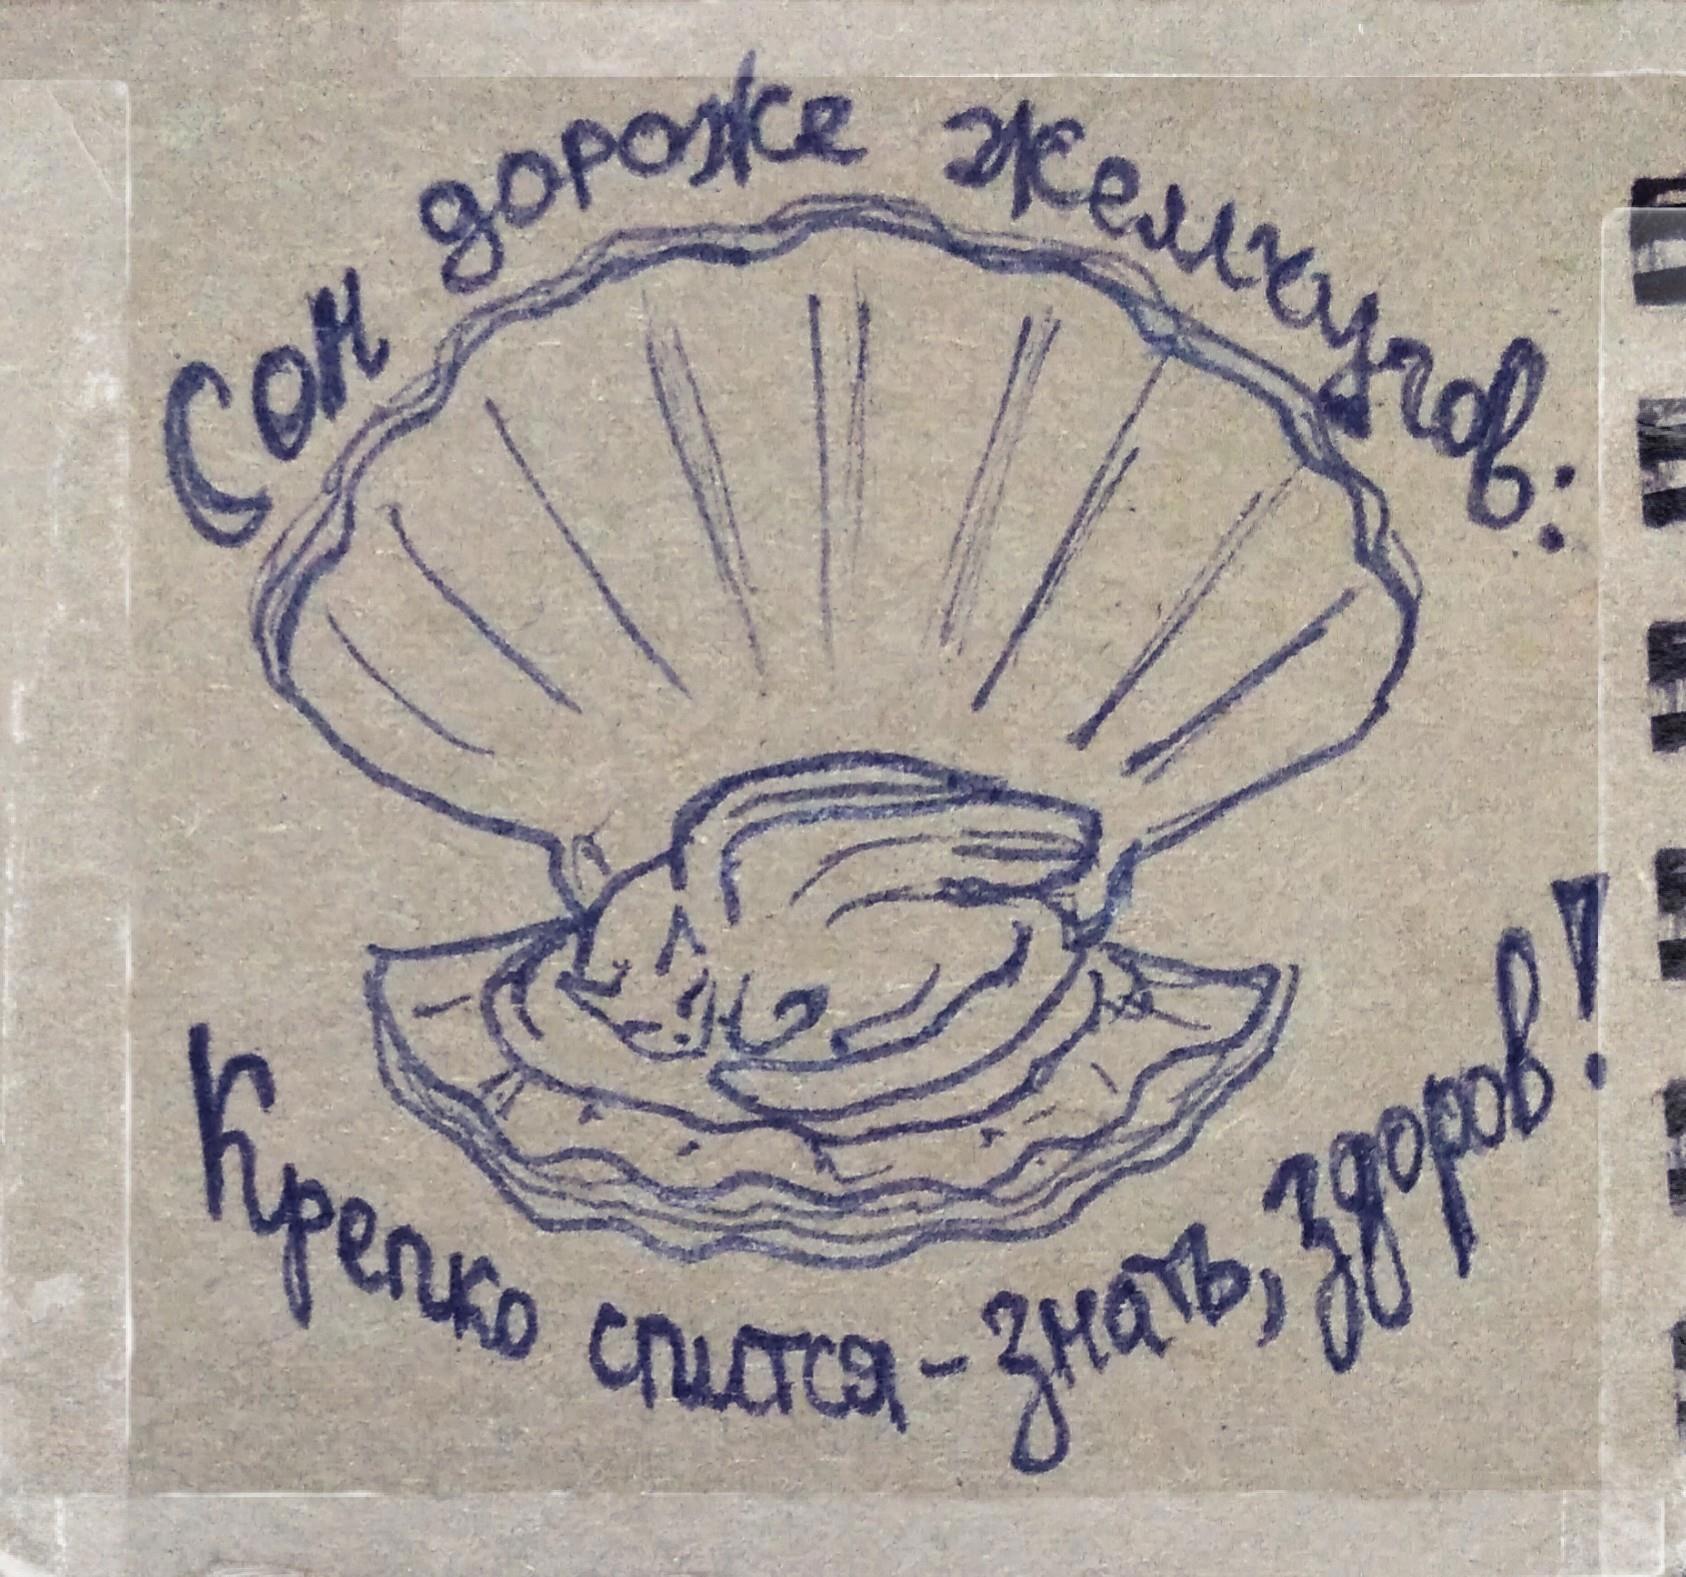 Сон дороже жемчугов:
Крепко спится - знать, здоров!